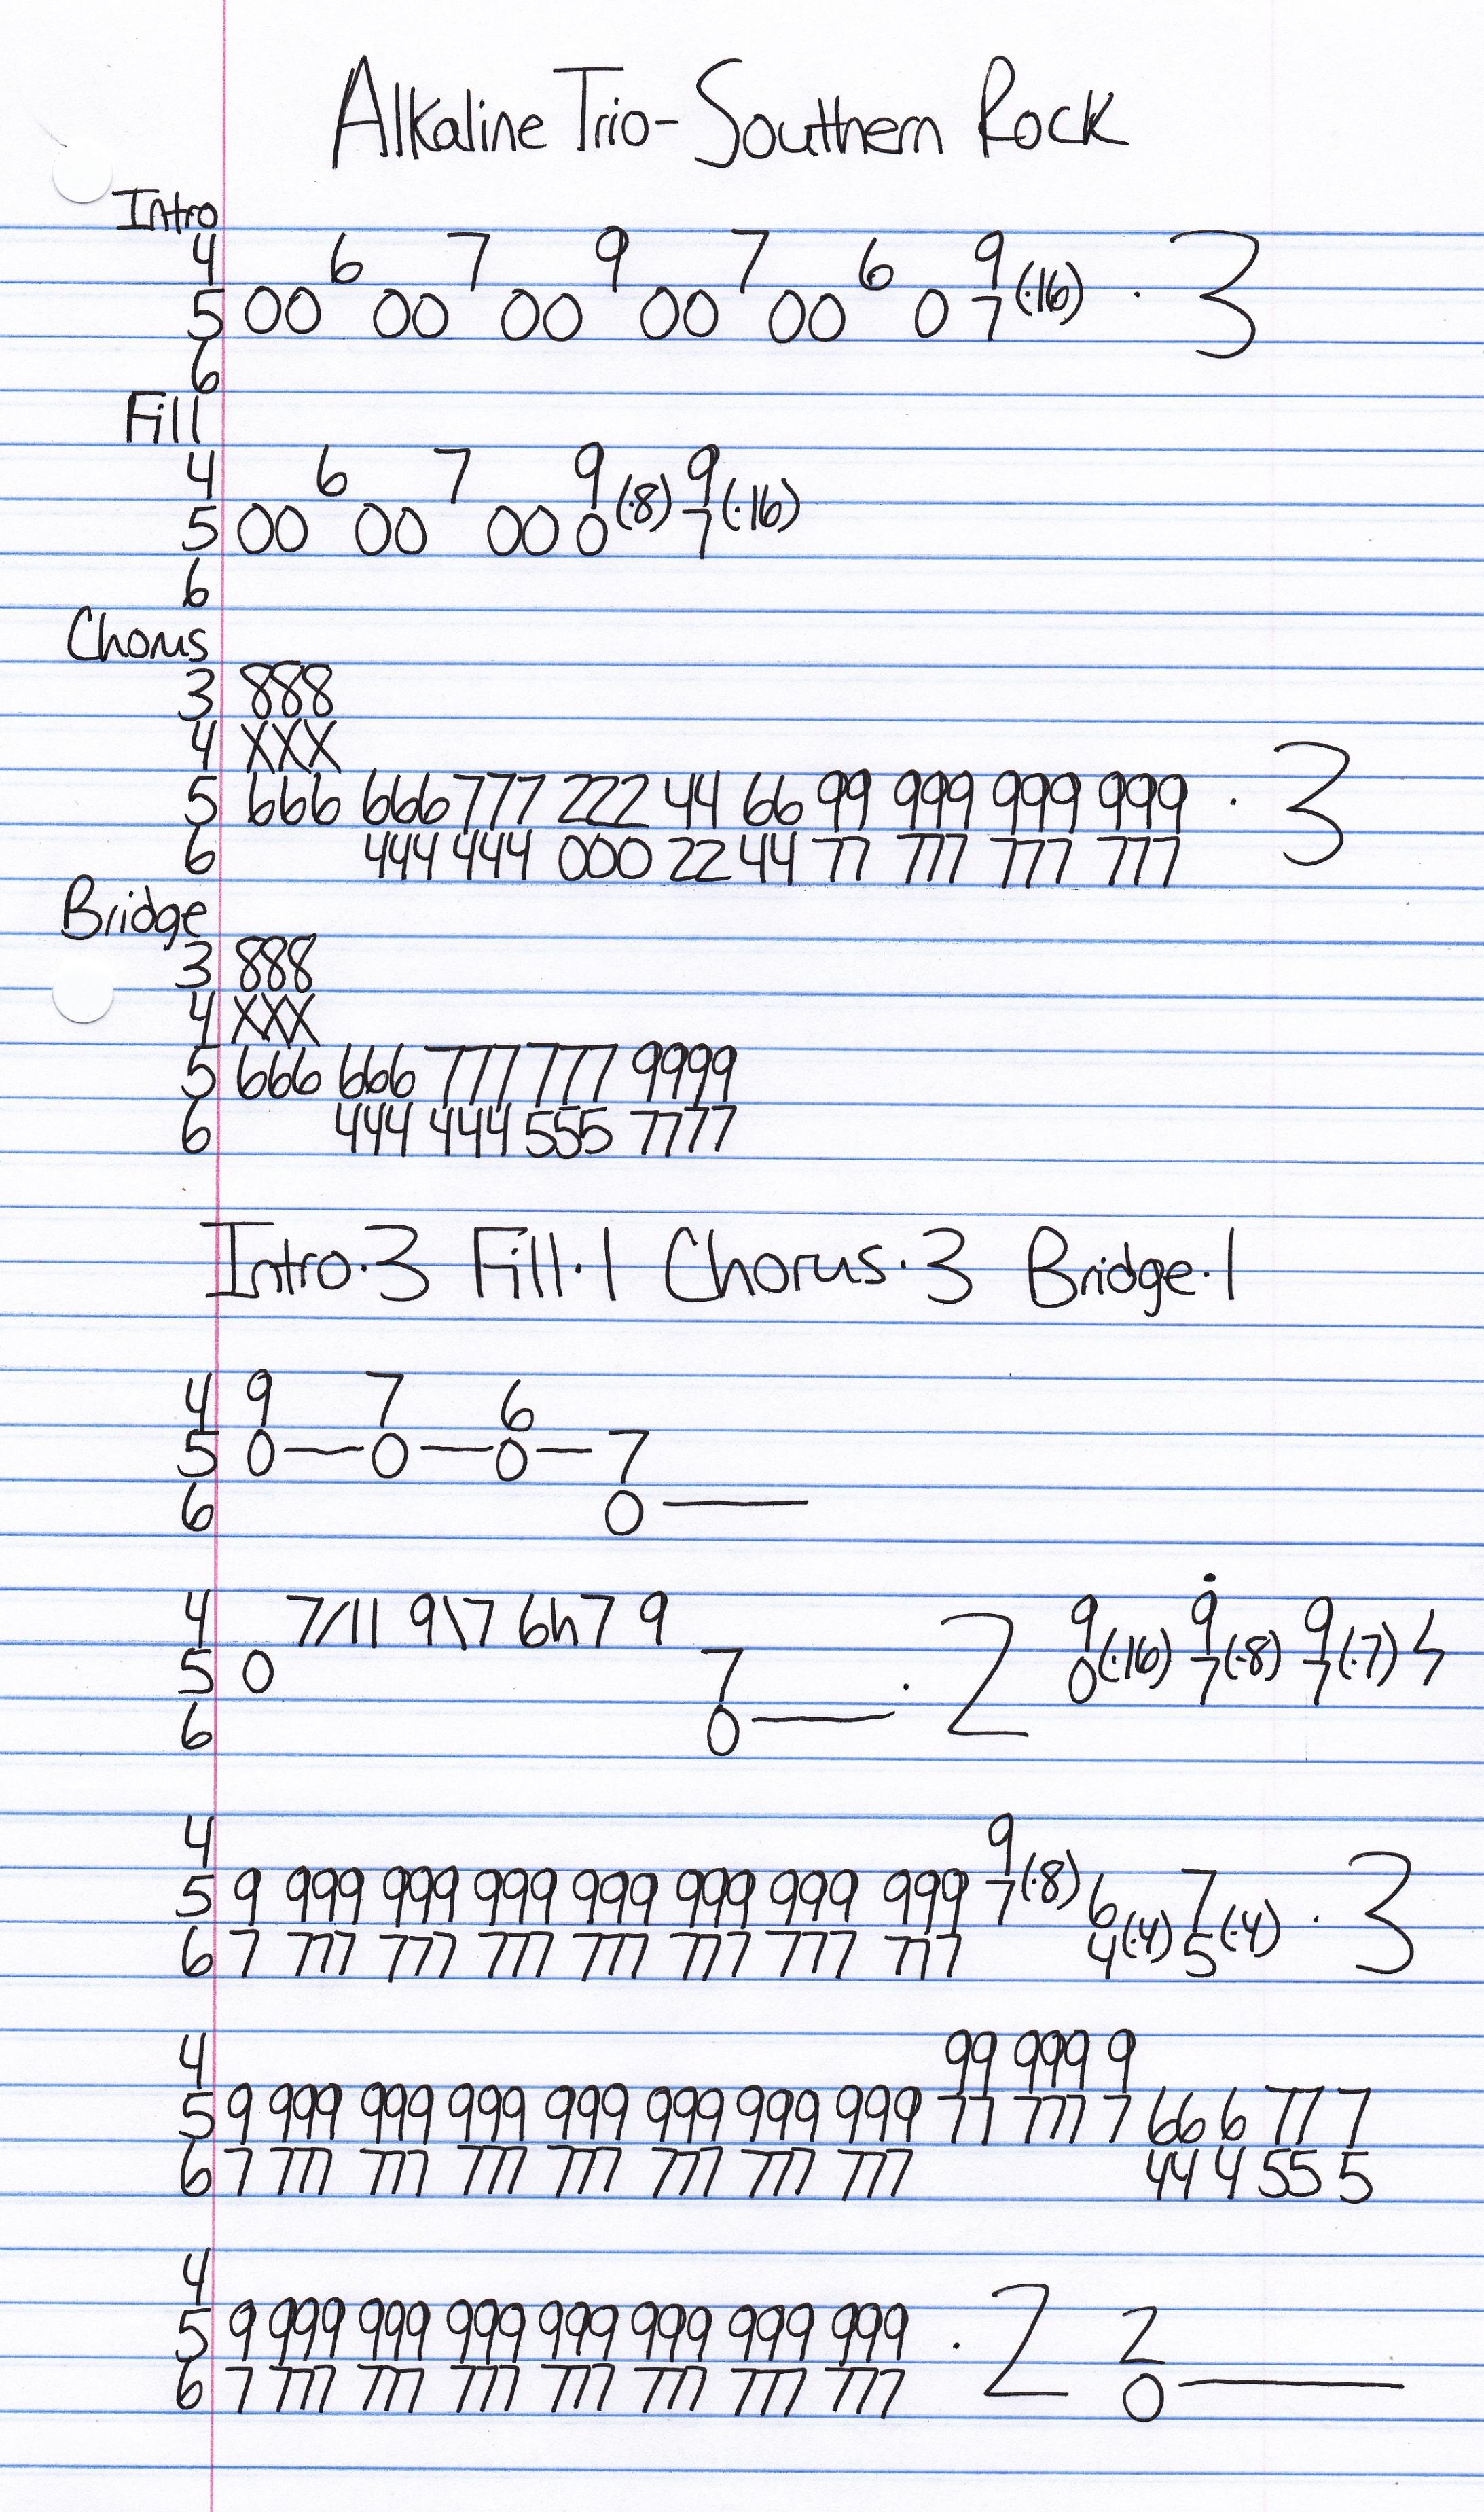 Alkaline Trio-Southern Rock
Intro
4 6 7 9 7 6 9
5 00 00 00 00 00 0 7 (·16) · 3
6
Fill
4 6 7 9 9
5 00 00 00 0 (·8) 7 (·16)
6
Chorus
3 888
4 XXX
5 666 666 777 222 44 66 99 999 999 999 · 3
6 444 444 000 22 44 77 777 777 777
Bridge
3 888
4 XXX
5 666 666 777 777 9999
6 444 444 555 7777
Intro·3 Fill·1 Chorus·3 Bridge·1
4 9 7 6
5 0—0—0—7
6 0——
4 7/11 9\7 6h7 9 9 9 9
5 0 7 · 2 0(·16) 7(·8) 7(·7)
6 0——
4 9
5 9 999 999 999 999 999 999 999 7(·8) 6 7 · 3
6 7 777 777 777 777 777 777 777 4(·4) 5(·4)
4 99 999 9
5 9 999 999 999 999 999 999 999 77 777 7 66 6 77 7
6 7 777 777 777 777 777 777 777 44 4 55 5
4
5 9 999 999 999 999 999 999 999 · 2 2
6 7 777 777 777 777 777 777 777 0——